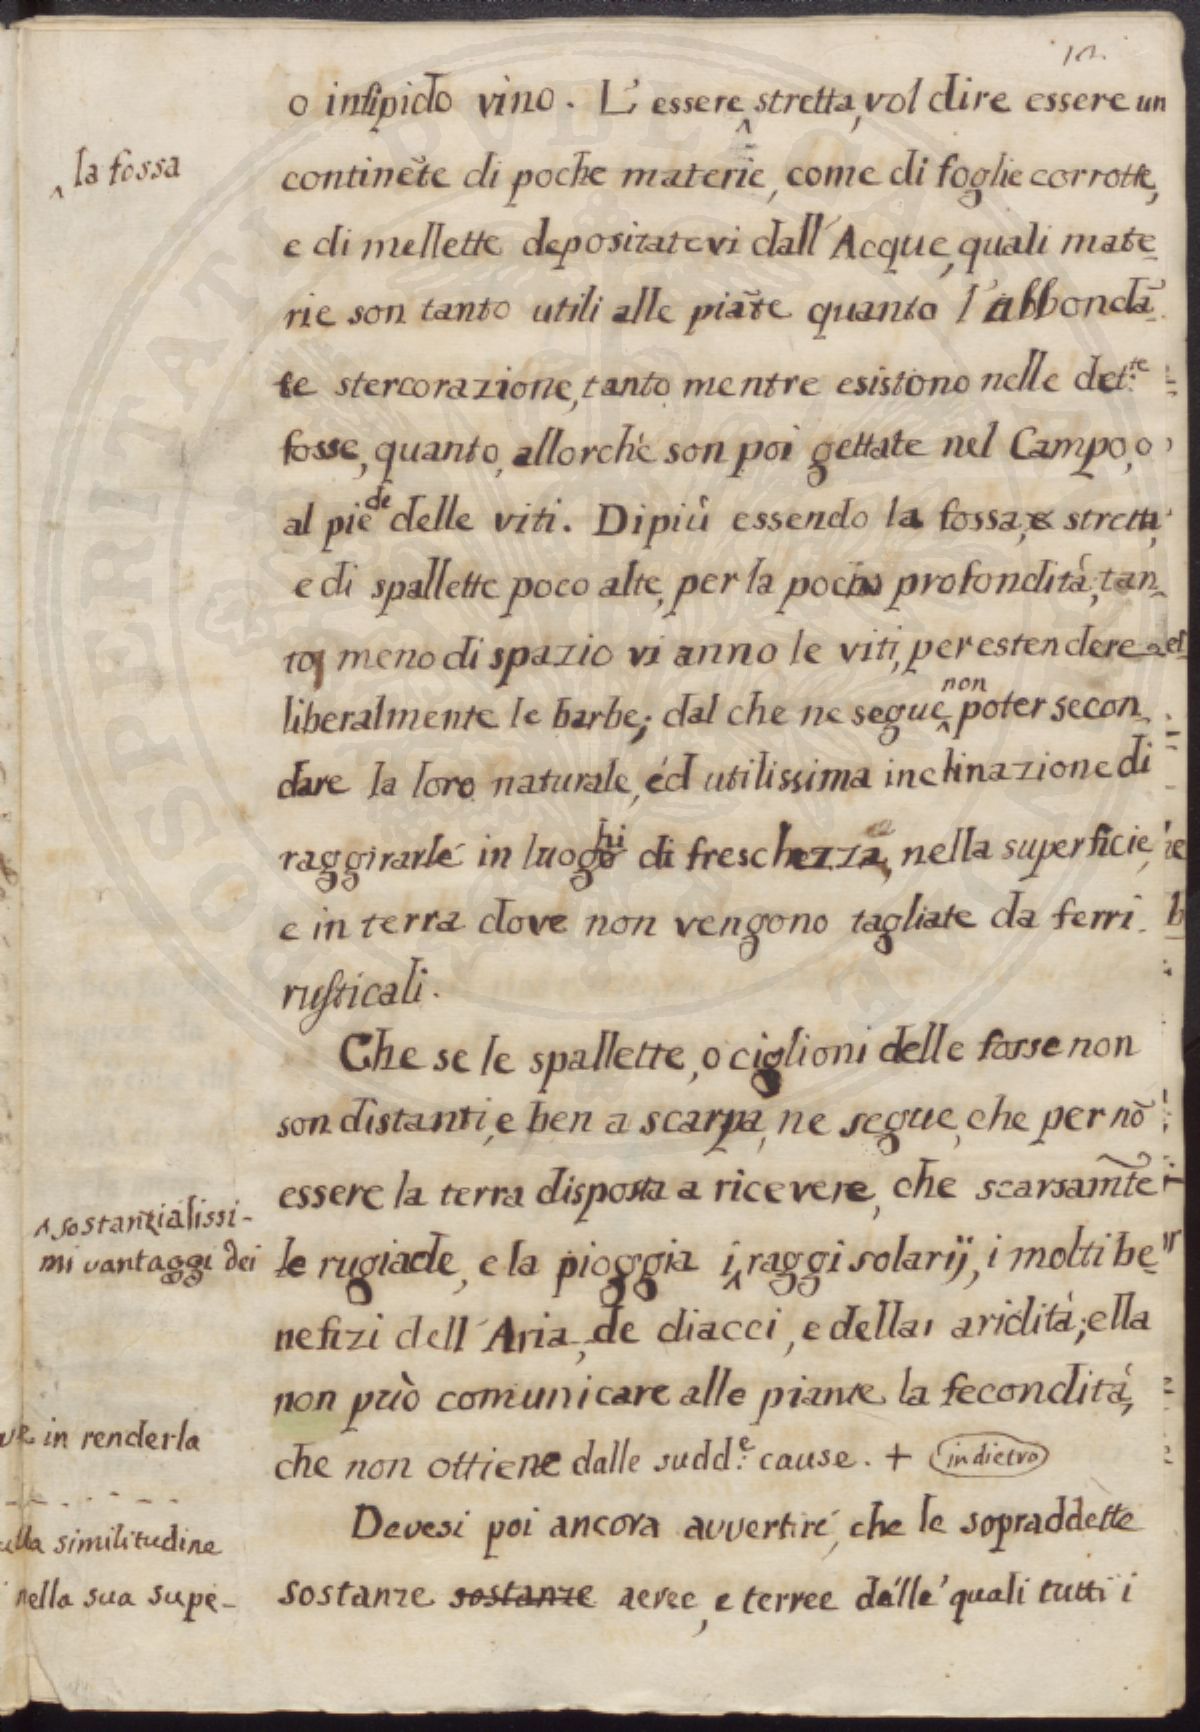 10.
o insipido vino. L'essere ‸ stretta, vol dire essere un
‸ la fossa
continẽte di poche materie, come di foglie corrotte,
e di mellette depositatevi dall'Acque, quali mate-
rie son tanto utili alle piãte quanto l'abbondã-
te stercorazione, tanto mentre esistono nelle det.te
fosse, quanto, allorchè son poi gettate nel Campo, o
al piede delle viti. Dipiù essendo la fossa, e stretta,
e di spallette poco alte, per la poca profondità; tan-
to meno di spazio vi anno le viti, per estendere
liberalmente le barbe; dal che ne segue ‸ non poter secon-
dare la loro naturale, éd utilissima inclinazione di
raggirarle in luoghi di freschezza, nella superficie,
e in terra dove non vengono tagliate da ferri
rusticali.
Che se le spallette, o ciglioni delle fosse non
son distanti, e ben a scarpa, ne segue, che per nõ
essere la terra disposta a ricevere, che scarsam̃te
‸ sostanzialissi-
mi vantaggi dei
le rugiade, e la pioggia i ‸ raggi solarij, i molti be-
nefizi dell'Aria, de diacci, e della aridità; ella
non può comunicare alle piante la fecondità,
in renderla
che non ottiene dalle sudd.e cause. + indietro
Devesi poi ancora avvertire, che le sopraddette
similitudine
sostanze sostanze aeree, e terree dalle quali tutti i
nella sua supe-